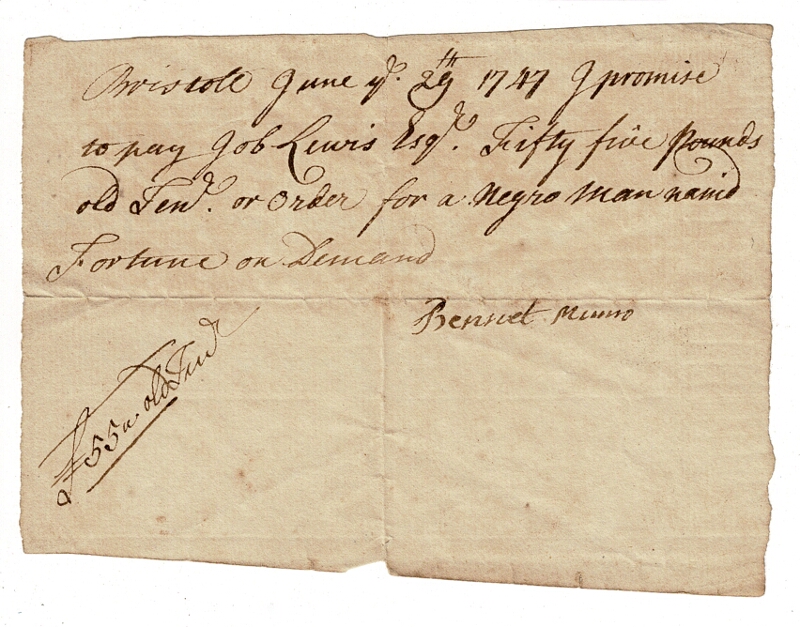 Bristoll June ye. 29th 1747 I promise
to pay Job Lewis Esqr. Fifty five Pounds
old Tenr. or Order for a Negro Man namd
Fortune on Demand
Bennet Munro
£55 " old Tenr